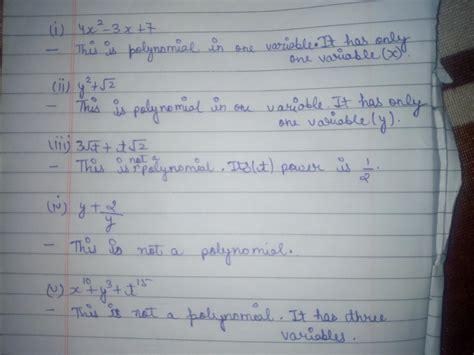 (i) 4x²-3x+7
- This is polynomial in one variable. It has only
one variable (x).
(ii) y²+√2
- This is polynomial in one variable. It has only
one variable (y).
(iii) 3√t + t√2
- This is not a polynomial. Its (t) power is 1/2
(iv) y + 2/y
- This is not a polynomial.
(v) x¹⁰+y³+t¹⁵
- This is not a polynomial. It has three
variables.